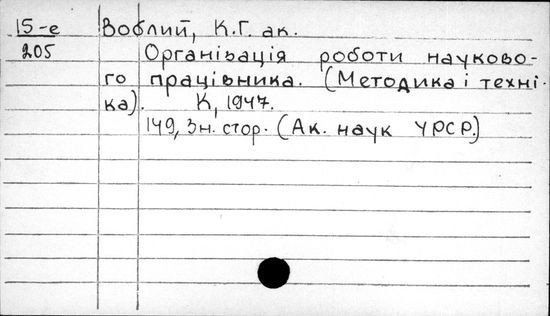 15-е Воблий, К.Г. ак.
205 Організація роботи науково-
го працівника. (Методика і техні-
ка). К, 1947.
149, 3н. стор. (Ак. наук УРСР.)